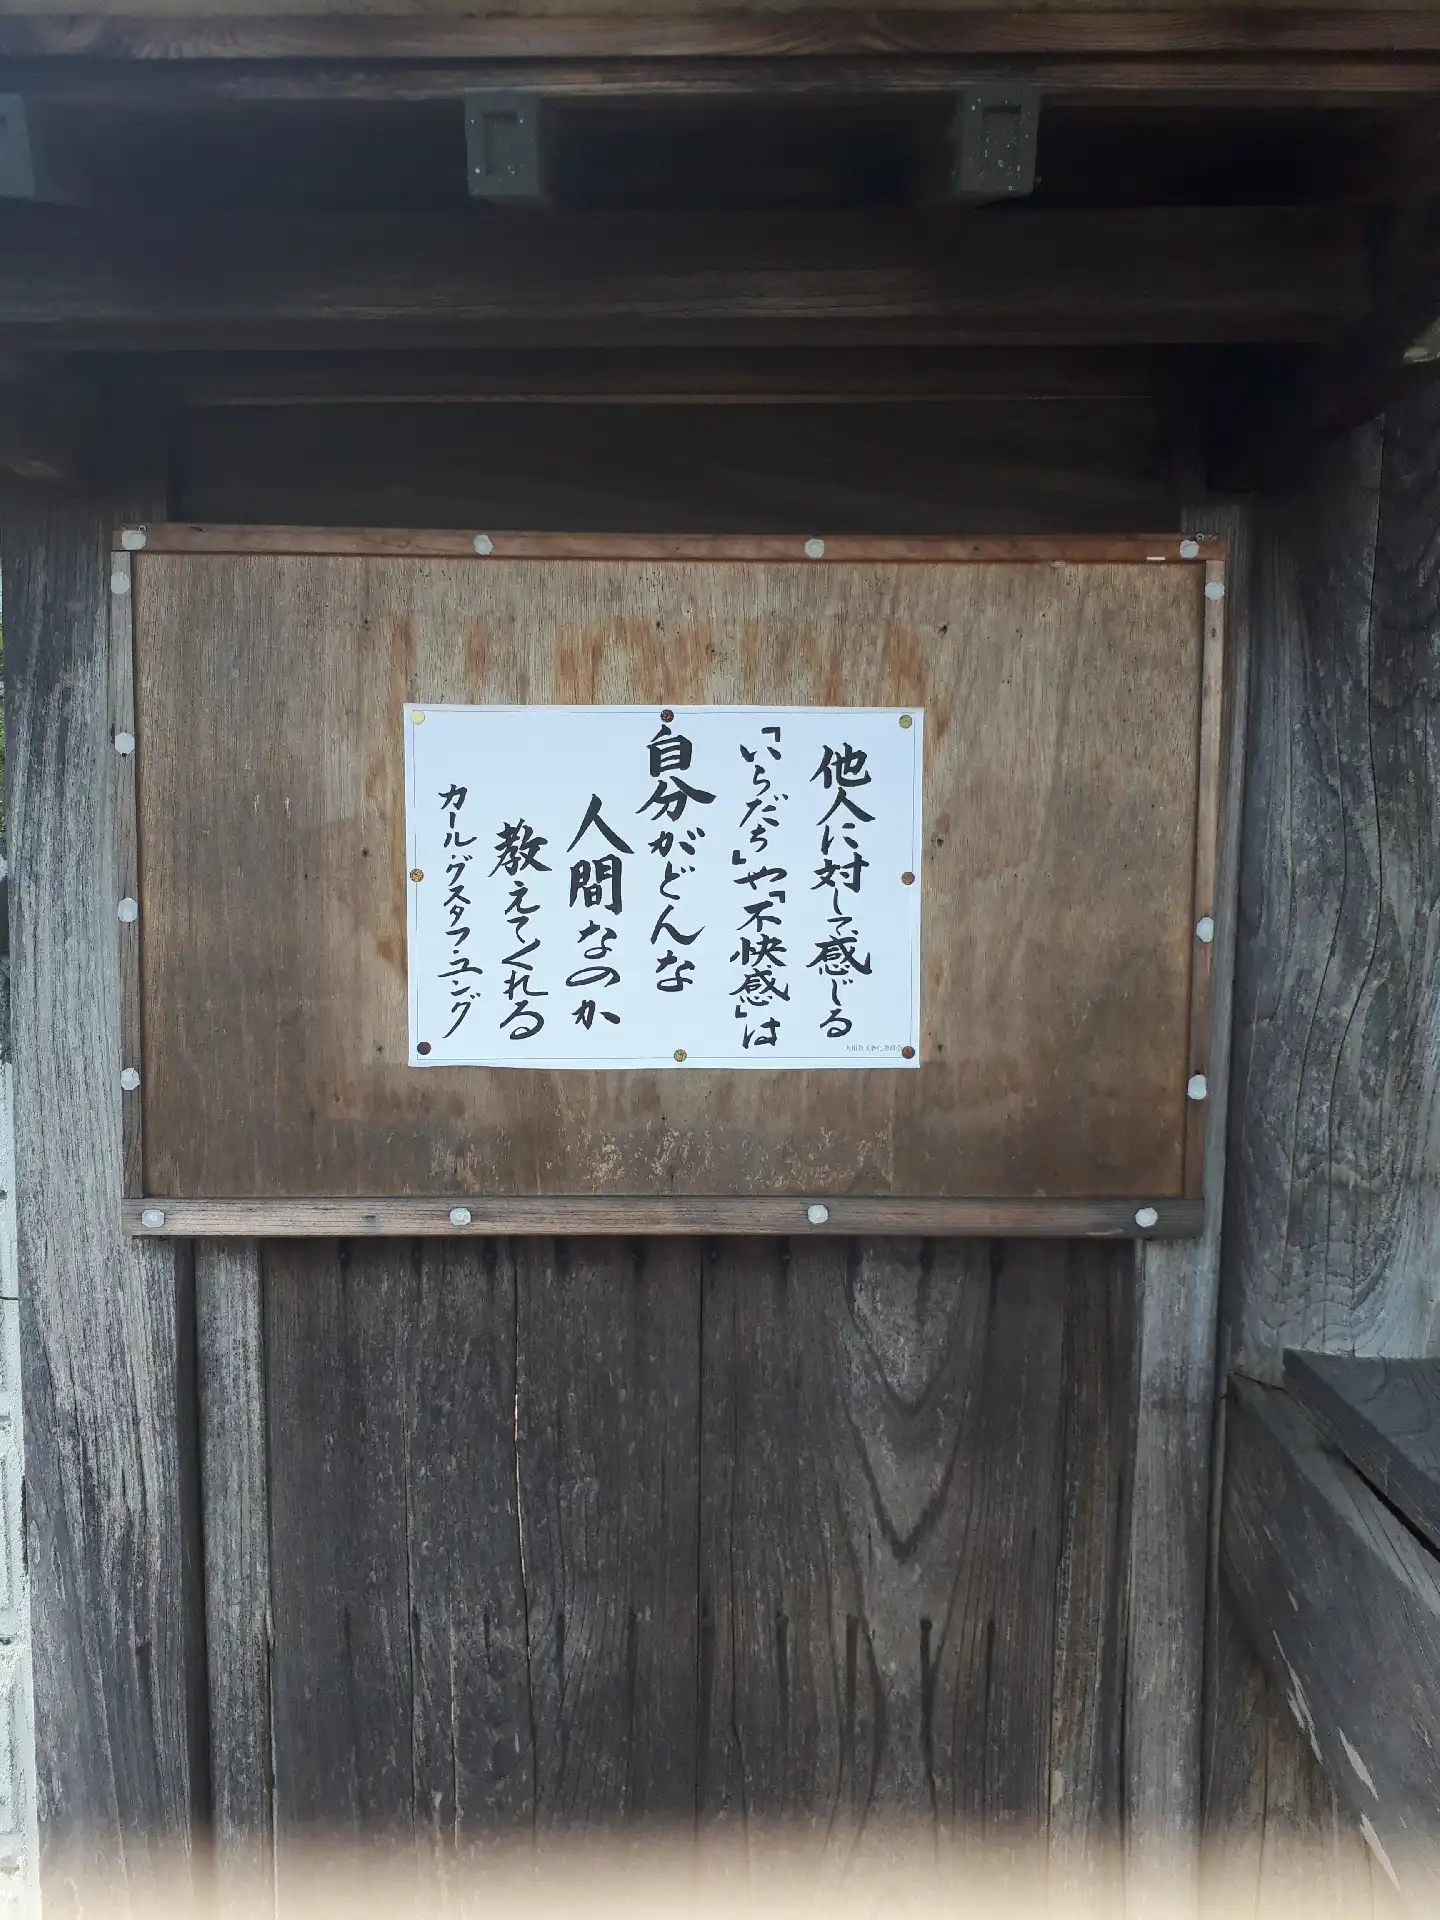 他人に対して、感じる
「いらだち」や「不快感」は
自分がどんな
人間なのか
教えてくれる
カール・グスタフ・ユング